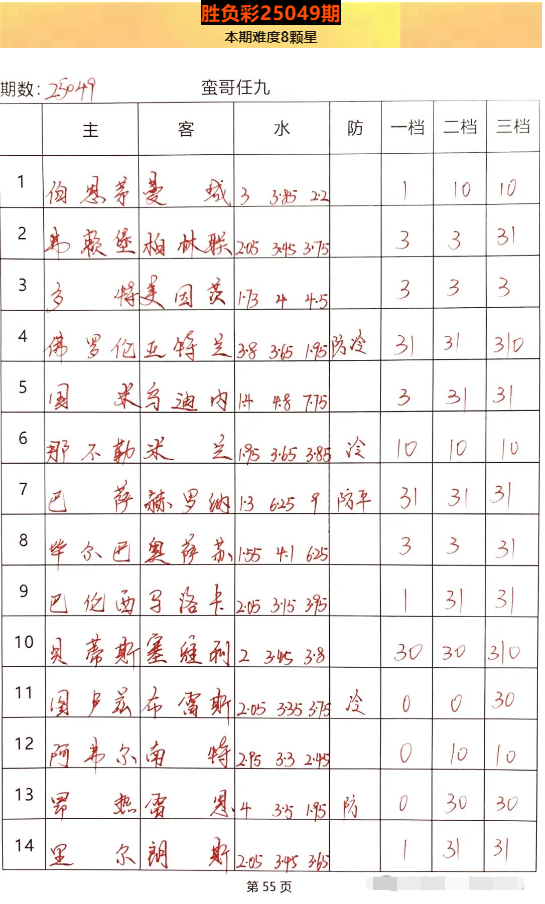 胜负彩25049期
本期难度8颗星
期数: 25049 蛮哥任九
主 客 水 防 一档 二档 三档
1 伯恩茅 曼城 3 3.85 2.2 1 10 10
2 弗赖堡 柏林联 2.05 3.45 3.75 3 3 31
3 多特 美因茨 1.73 4 4.5 3 3 3
4 佛罗伦 亚特兰 3.8 3.65 1.95 防冷 31 31 310
5 国米 乌迪内 1.4 4.8 7.75 3 31 31
6 那不勒 米兰 1.95 3.65 3.85 冷 10 10 10
7 巴萨 赫罗纳 1.3 6.25 9 防平 31 31 31
8 毕尔巴 奥萨苏 1.55 4.1 6.25 3 3 31
9 巴伦西 马洛卡 2.05 3.15 3.95 1 31 31
10 贝蒂斯 塞维利 2 3.45 3.8 30 30 310
11 图卢兹 布雷斯 2.05 3.35 3.75 冷 0 0 30
12 阿弗尔 南特 2.95 3.3 2.45 0 10 10
13 昂热 雷恩 4 3.5 1.95 防 0 30 30
14 里尔 朗斯 2.05 3.45 3.65 1 31 31
第 55 页